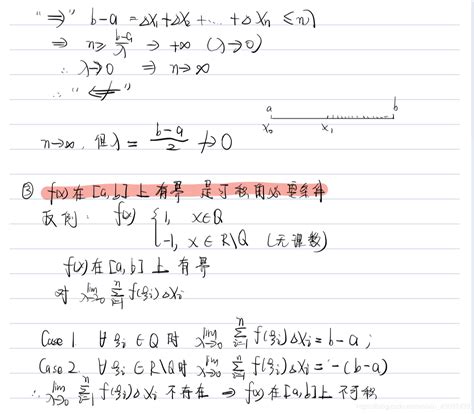 "⇒" b-a = ΔX₁+ΔX₂+...+ΔXₙ ≤ nλ
⇒ n ≥ (b-a)/λ → +∞ (λ→0)
∴ λ→0 ⇒ n→∞
∴ "⇍"
a b
x₀ x₁
n→∞, 但 λ = (b-a)/2 ↛ 0
③ f(x) 在 [a,b] 上有界 是可积的必要条件
反例: f(x) { 1, x∈Q
-1, x∈R\Q (无理数)
f(x) 在 [a,b] 上 有界
对 lim λ→0 Σ i=1 n f(ξᵢ)ΔXᵢ
Case 1 ∀ξᵢ∈Q 时 lim λ→0 Σ i=1 n f(ξᵢ)ΔXᵢ = b-a ;
Case 2. ∀ξᵢ∈R\Q 时 lim λ→0 Σ i=1 n f(ξᵢ)ΔXᵢ = -(b-a)
∴ lim λ→0 Σ i=1 n f(ξᵢ)ΔXᵢ 不存在 ⇒ f(x) 在 [a,b] 上 不可积